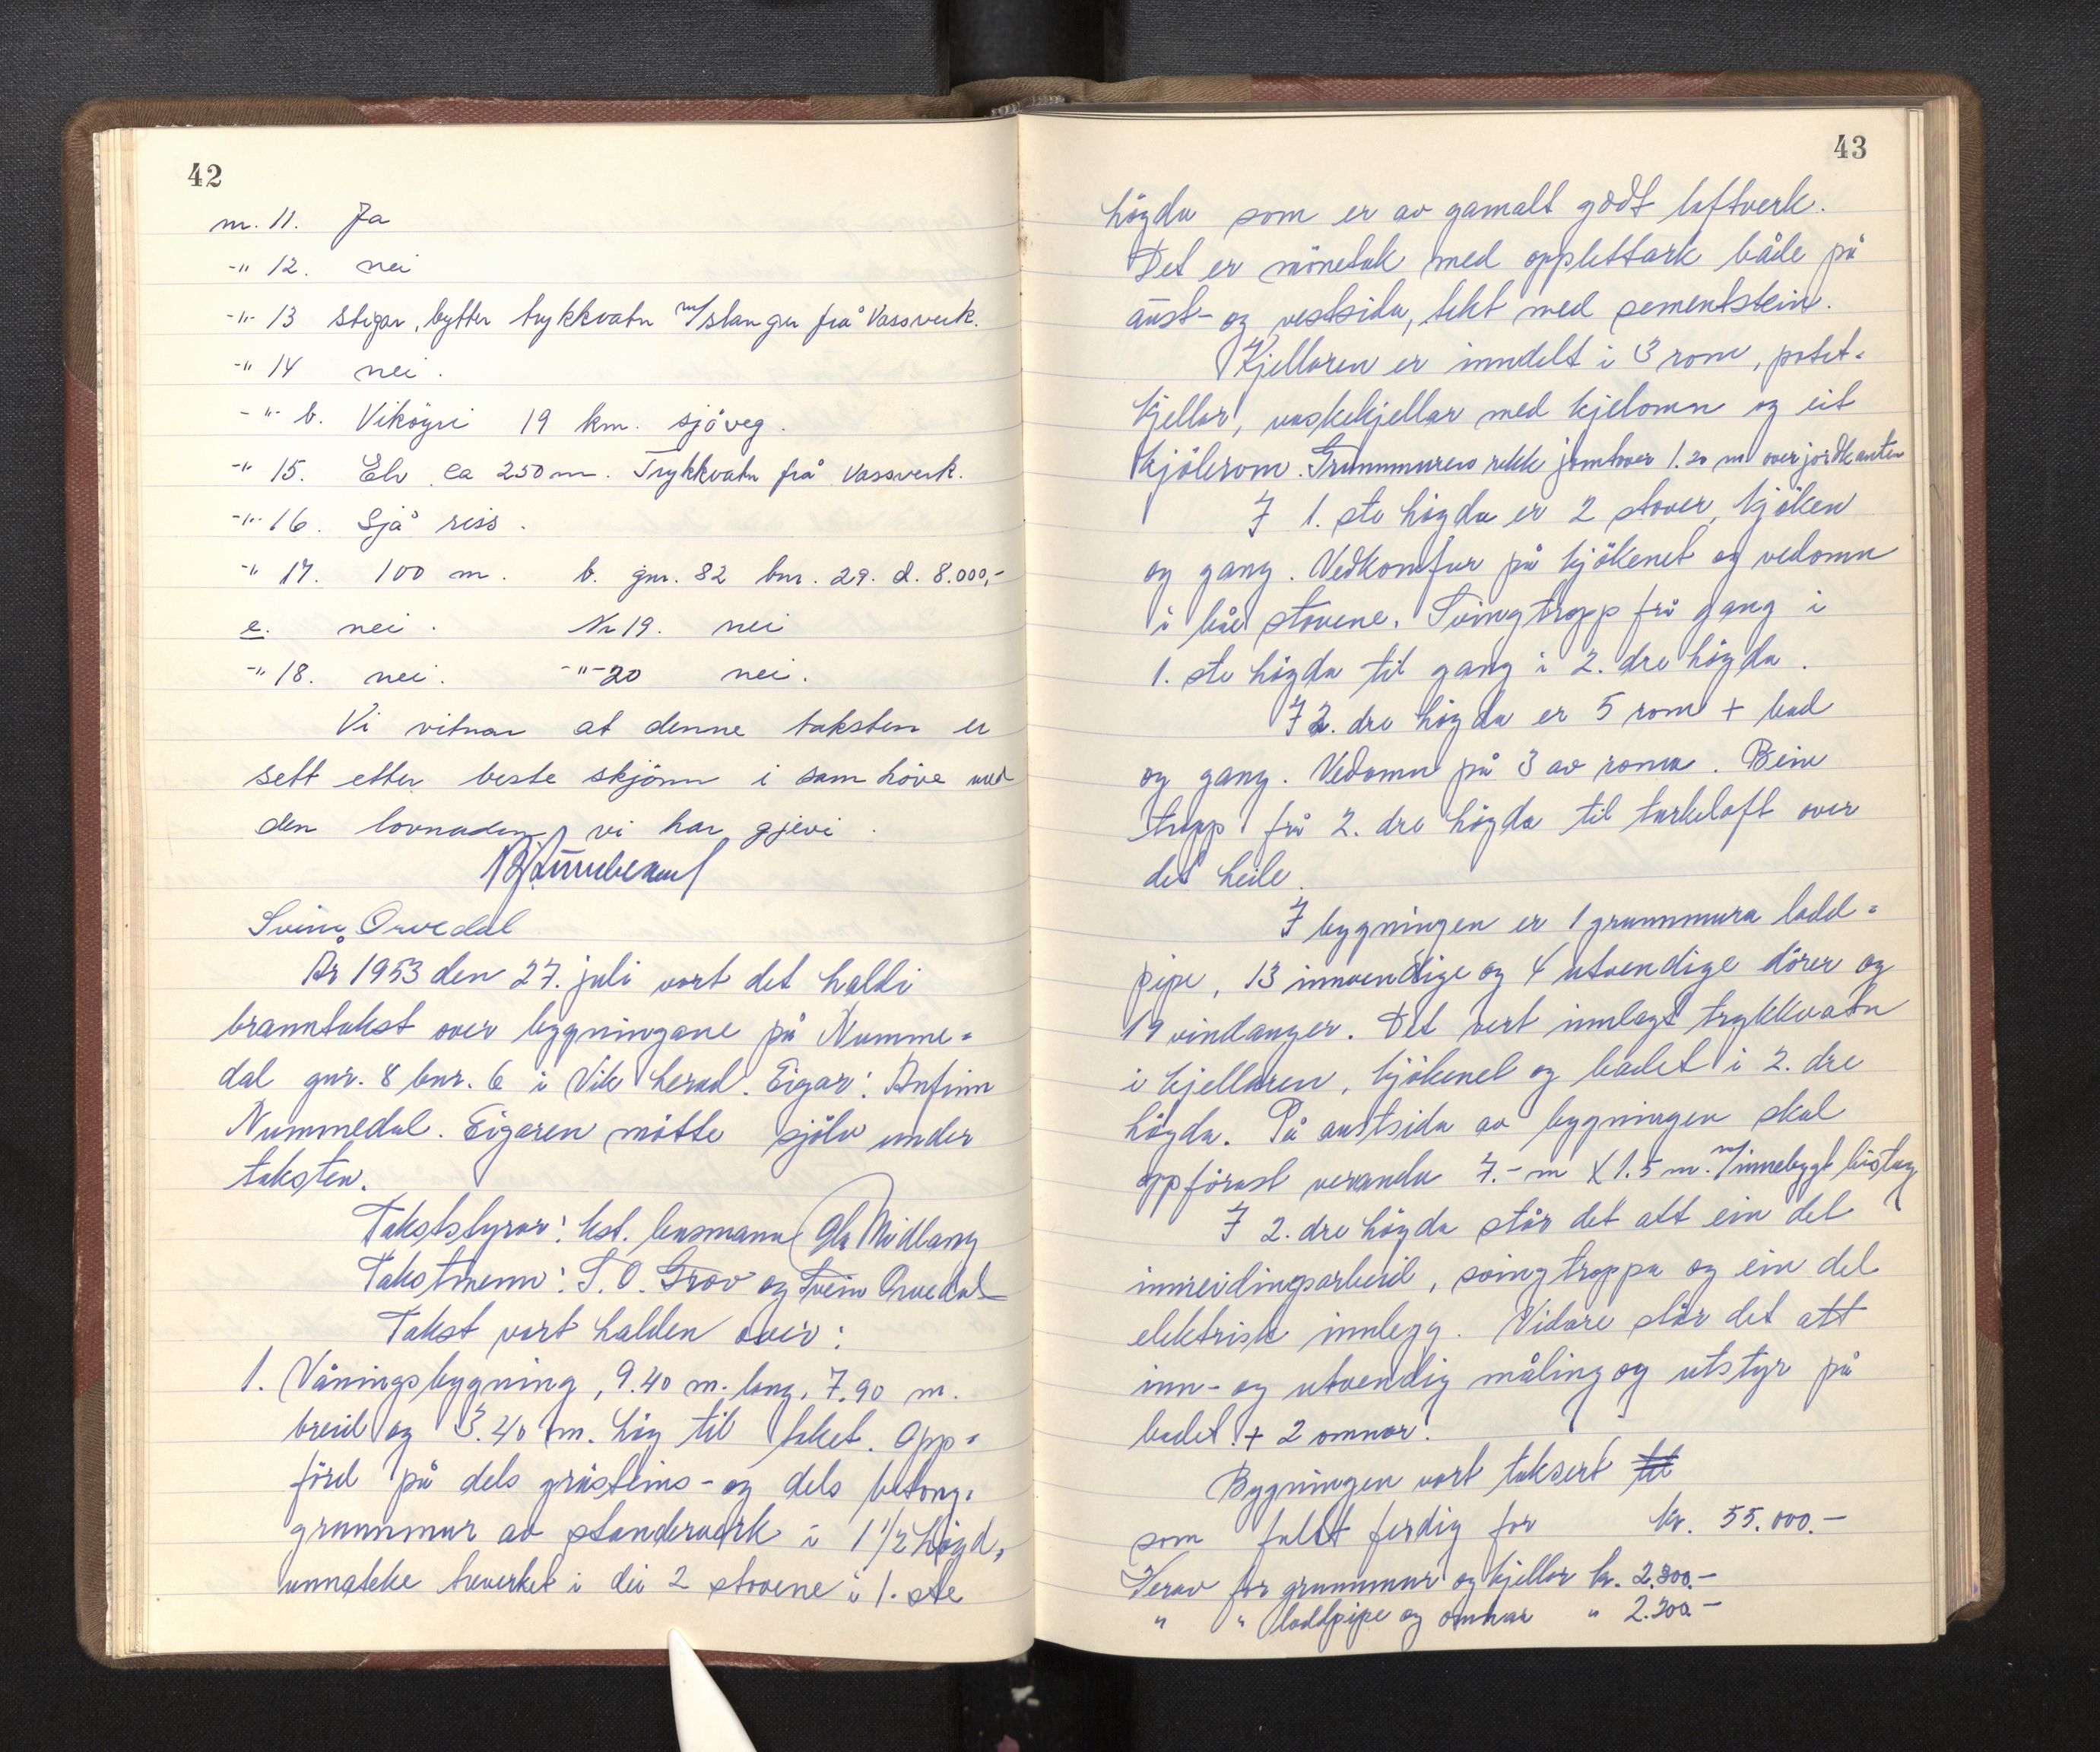 42
nr. 11. Ja
-"- 12. nei
-"- 13 stigar, bytter trykkvatn m/slanger frå Vassverk.
-"- 14 nei.
-"- b. Vikøyri 19 km. sjöveg.
-"- 15. Elv ca 250 m. Trykkvatn frå Vassverk.
-"- 16. Sjå riss.
-"- 17. 100 m. b. gnr. 82 bnr. 29. d. 8.000,-
e. nei. Nr 19. nei
-"- 18. nei. -"- 20 nei.
Vi vitnar at denne taksten er
sett etter beste skjönn i samhöve med
den lovnaden vi har gjevi.
Svein Orvedal
År 1953 den 27. juli vart det haldi
branntakst over bygningane på Numme=
dal gnr. 8 bnr. 6 i Vik herad. Eigar: Anfinn
Nummedal. Eigaren mötte sjölv under
taksten.
Takststyrar: kst. lensmann Ola Midlang
Takstmenn: T. O. Grov og Svein Orvedal
Takst vart halden over:
1. Våningsbygning, 9.40 m. lang, 7.90 m.
breid og 3.40 m. höy til taket. Opp=
förd på dels gråsteins- og dels betong=
grunnmur av standerverk i 1 1/2 högd,
unnateke treverket i dei 2 stovene i 1. ste
43
högda som er av gamalt godt laftverk.
Det er mönetak med opplettark både på
aust- og vestsida, tekt med sementstein.
Kjellaren er inndelt i 3 rom, potet=
kjellar, vaskekjellar med kjelomn og eit
kjölerom. Grunnmuren rekk jamtover 1.20 m over jordkanten
I 1. ste högda er 2 stover, kjöken
og gang. Vedkomfur på kjökenet og vedomn
i båe stovene. Svingtropp frå gang i
1. ste högda til gang i 2. dre högda.
I 2. dre högda er 5 rom + bad
og gang. Vedomn på 3 av roma. Bein
tropp frå 2. dre högda til turkeloft over
det heile.
I bygningen er 1 grunnmura ladd=
pipe, 13 innvendige og 4 utvendige dörer og
19 vindauger. Det vert innlagt trykkvatn
i kjellaren, kjökenet og badet i 2. dre
högda. På austsida av bygningen skal
oppförast veranda 7.- m X 1.5 m. m/innebygt bislag
I 2. dre högda står det att ein del
innreidingsarbeid, svingtroppa og ein del
elektrisk innlegg. Vidare står det att
inn- og utvendig måling og utstyr på
badet + 2 omnar.
Bygningen vart taksert til
som fullt ferdig for kr. 55.000.-
Herav for grunnmur og kjellar kr. 2.300.-
" " laddpipe og omnar " 2.200.-